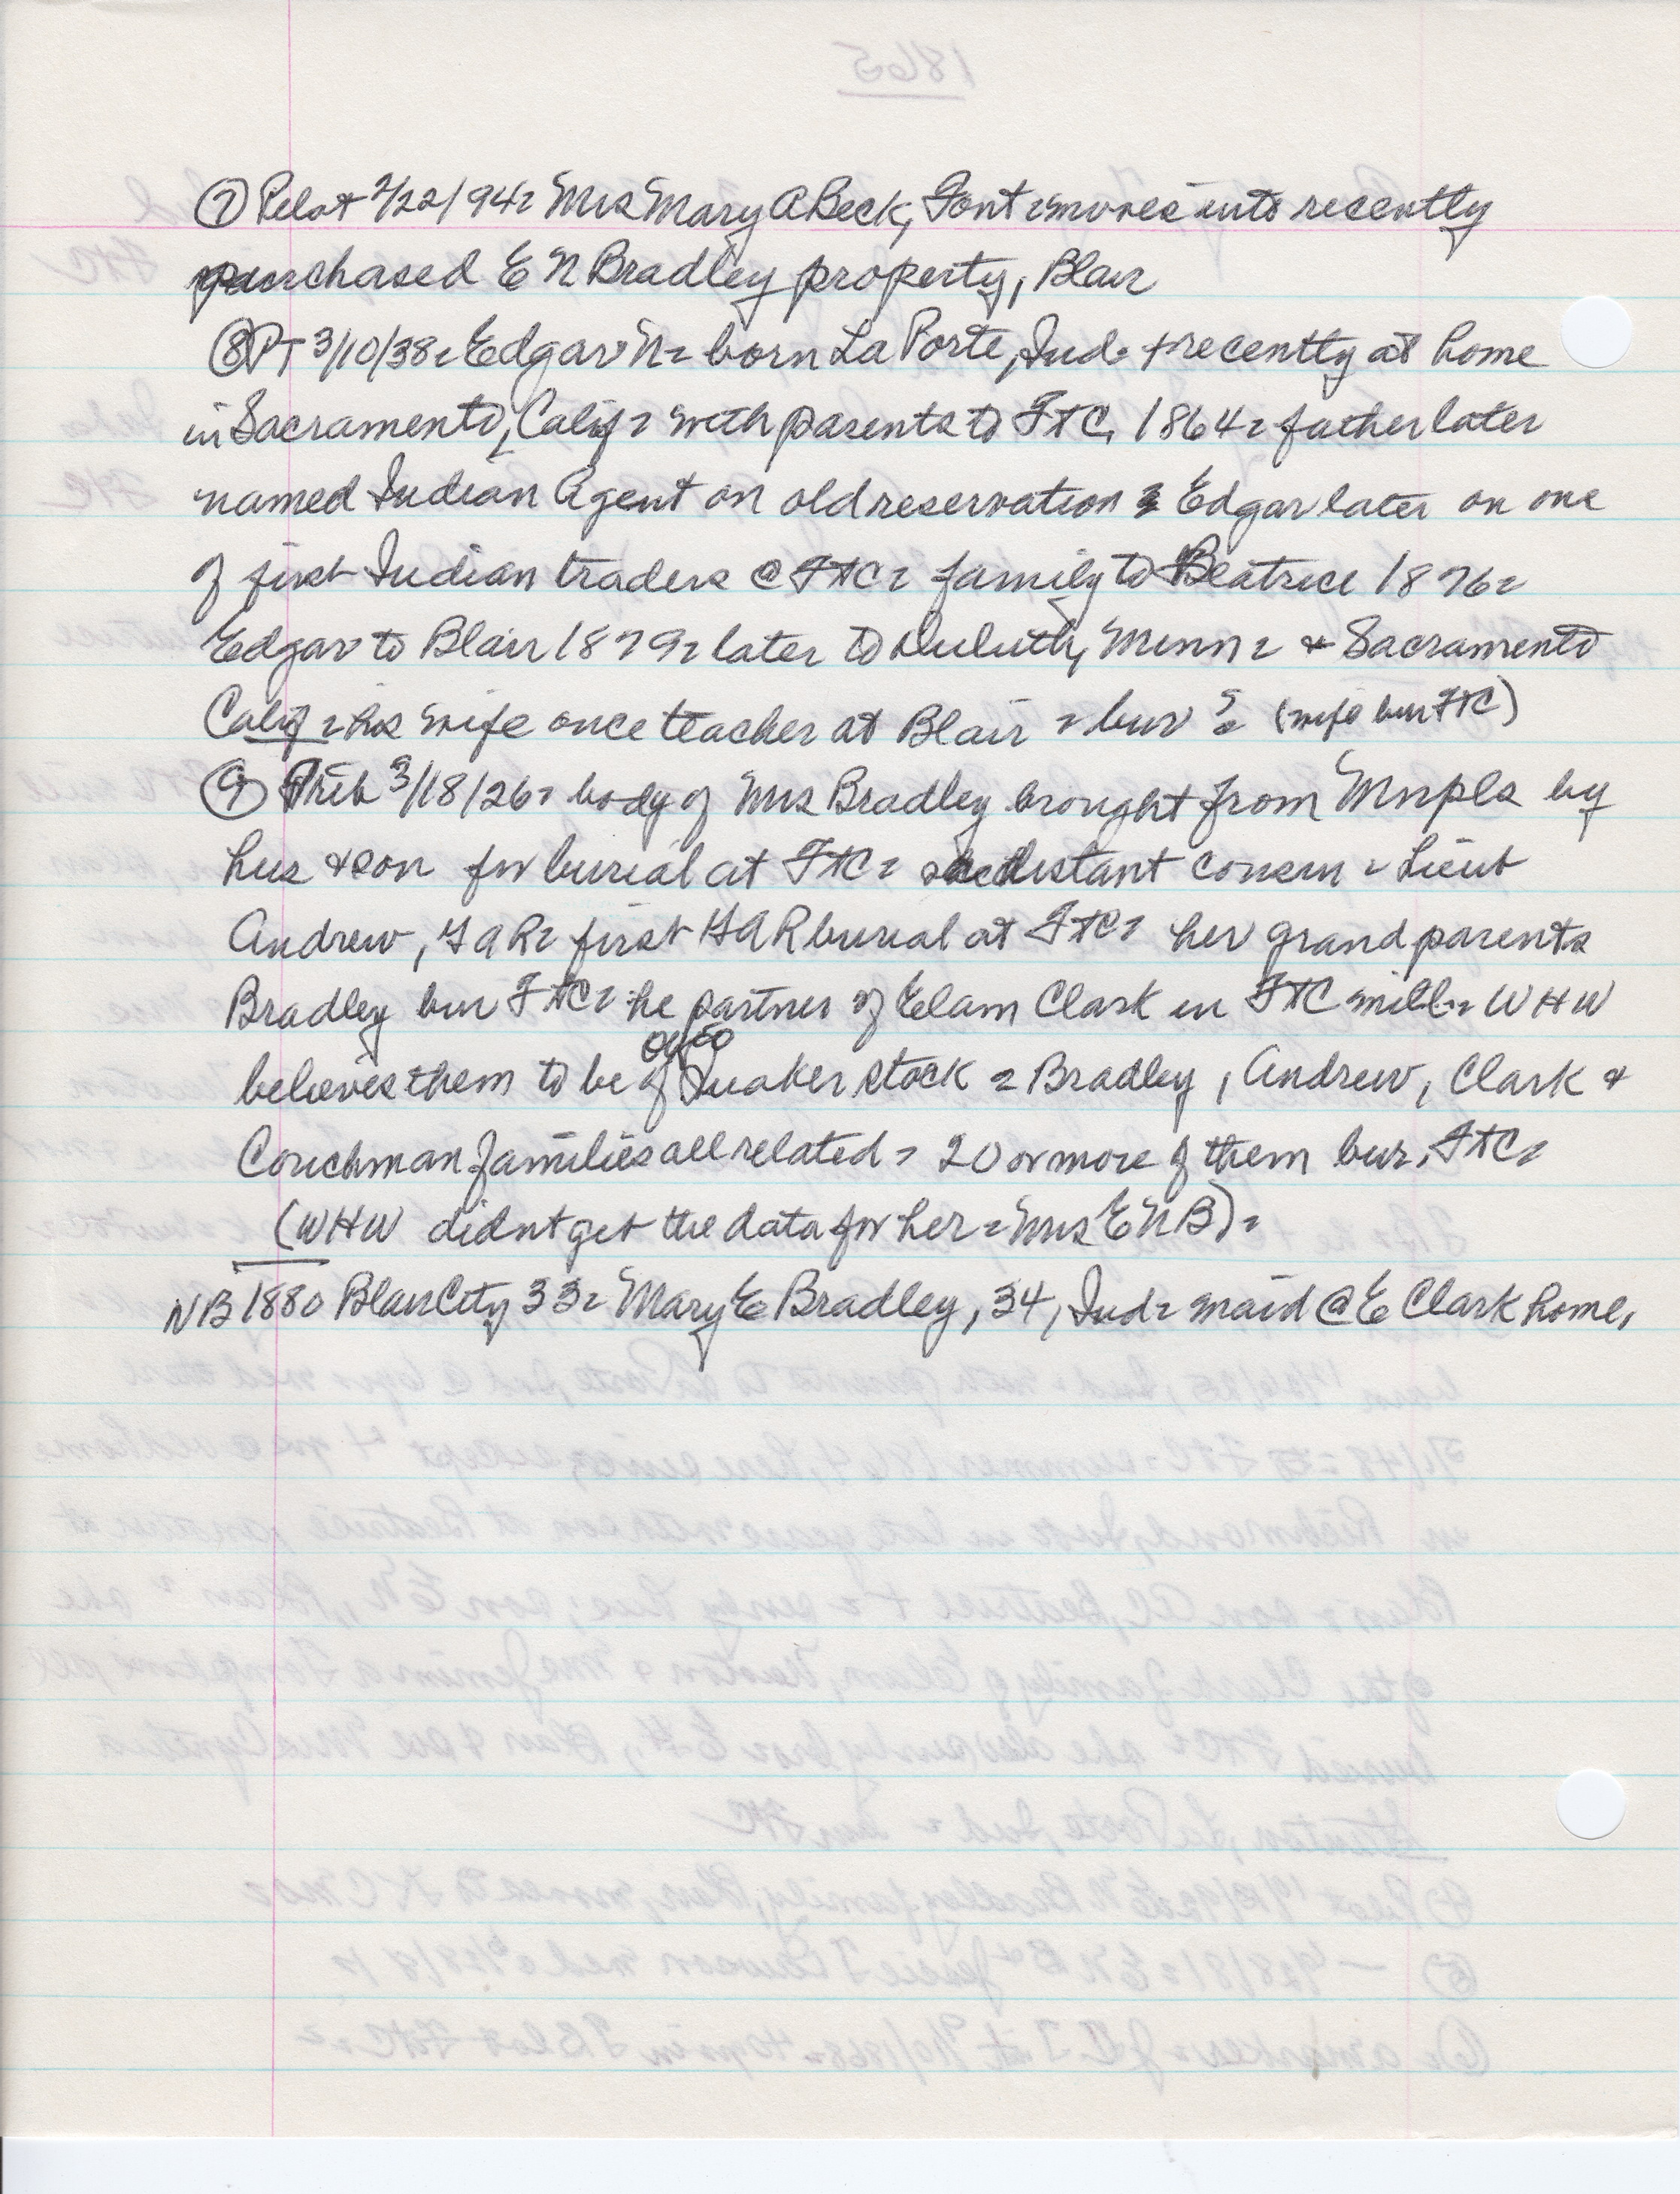 ⑦ Pilot 2/22/94= Mrs Mary A Beck, Font = moves into recently
purchased E N Bradley property, Blair
⑧ PT 3/10/38= Edgar N= born La Porte, Ind. + recently at home
in Sacramento, Calif = with parents to FtC, 1864= father later
named Indian Agent on old reservation = Edgar later on one
of first Indian traders @ FtC= family to Beatrice 1876=
Edgar to Blair 1879= later to Duluth, Minn = & Sacramento
Calif = his wife once teacher at Blair = bur ?= (wife bur FtC)
⑨ Trib 3/18/26= body of Mrs Bradley brought from Mnpls by
hus & son for burial at FtC= distant cousin = Lieut
Andrew, GAR= first GAR burial at FtC= her grandparents
Bradley bur FtC= he partner of Elam Clark in FtC mill= WHW
believes them to be of Quaker stock = Bradley, Andrew, Clark &
Couchman families all related = 20 or more of them bur, FtC=
(WHW didnt get the data for her = Mrs ENB)=
NB 1880 Blair City 33= Mary E Bradley, 34, Ind= maid @ E Clark home,